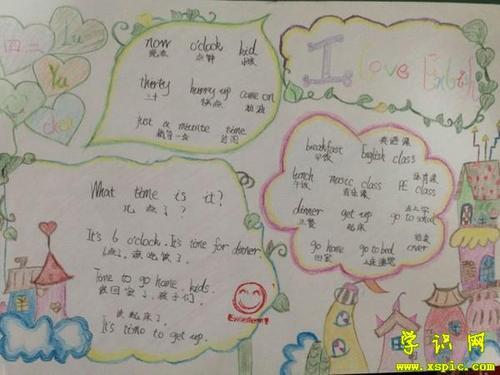 四二
Lu
Yu
chen
now o'clock kid
现在 点钟 小孩
thirty hurry up come on
三十 快点
just a minute time
稍等一会 时间
I Love English
英语课
breakfast English class
早饭
体育课
lunch music class PE class
午饭 音乐课
去上学
dinner get up go to school
正餐 起床
结束
go home go to bed over
回家 上床睡觉
What time is it?
几点了?
It's 6 o'clock. It's time for dinner.
6点了,该吃饭了。
Time to go home, kids.
该回家了,孩子们。
该起床了。
It's time to get up.
Excellent!
学识网
www.xspic.com